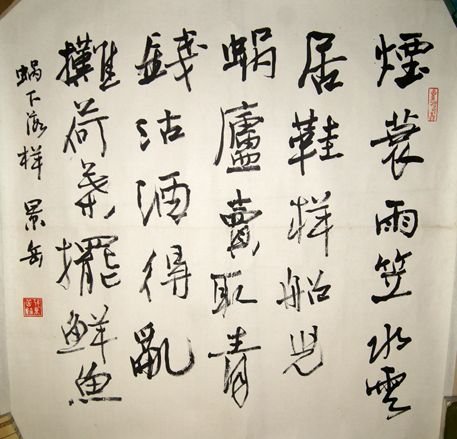 煙蓑雨笠水雲
居鞋样船児
蝸廬賣取青
錢沽酒得亂
攤荷葉擺鮮魚
蝸下落样 景